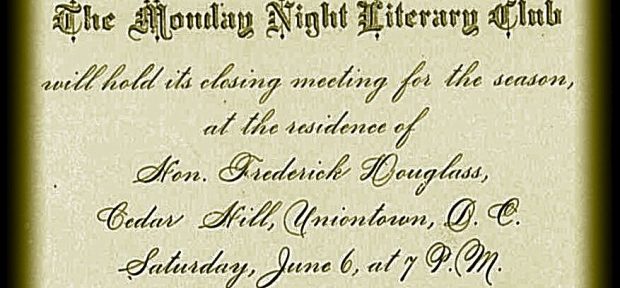 The Monday Night Literary Club
will hold its closing meeting for the season,
at the residence of
Hon. Frederick Douglass,
Cedar Hill, Uniontown, D. C.
Saturday, June 6, at 7 P. M.